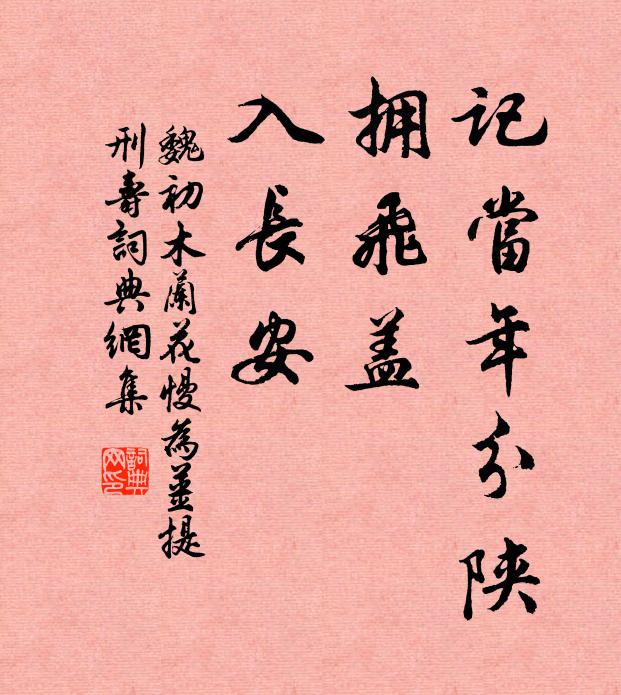 記當年分陝
拥飛盖
入長安
魏初木蘭花慢為姜提
刑壽詞典網集
詞典网印